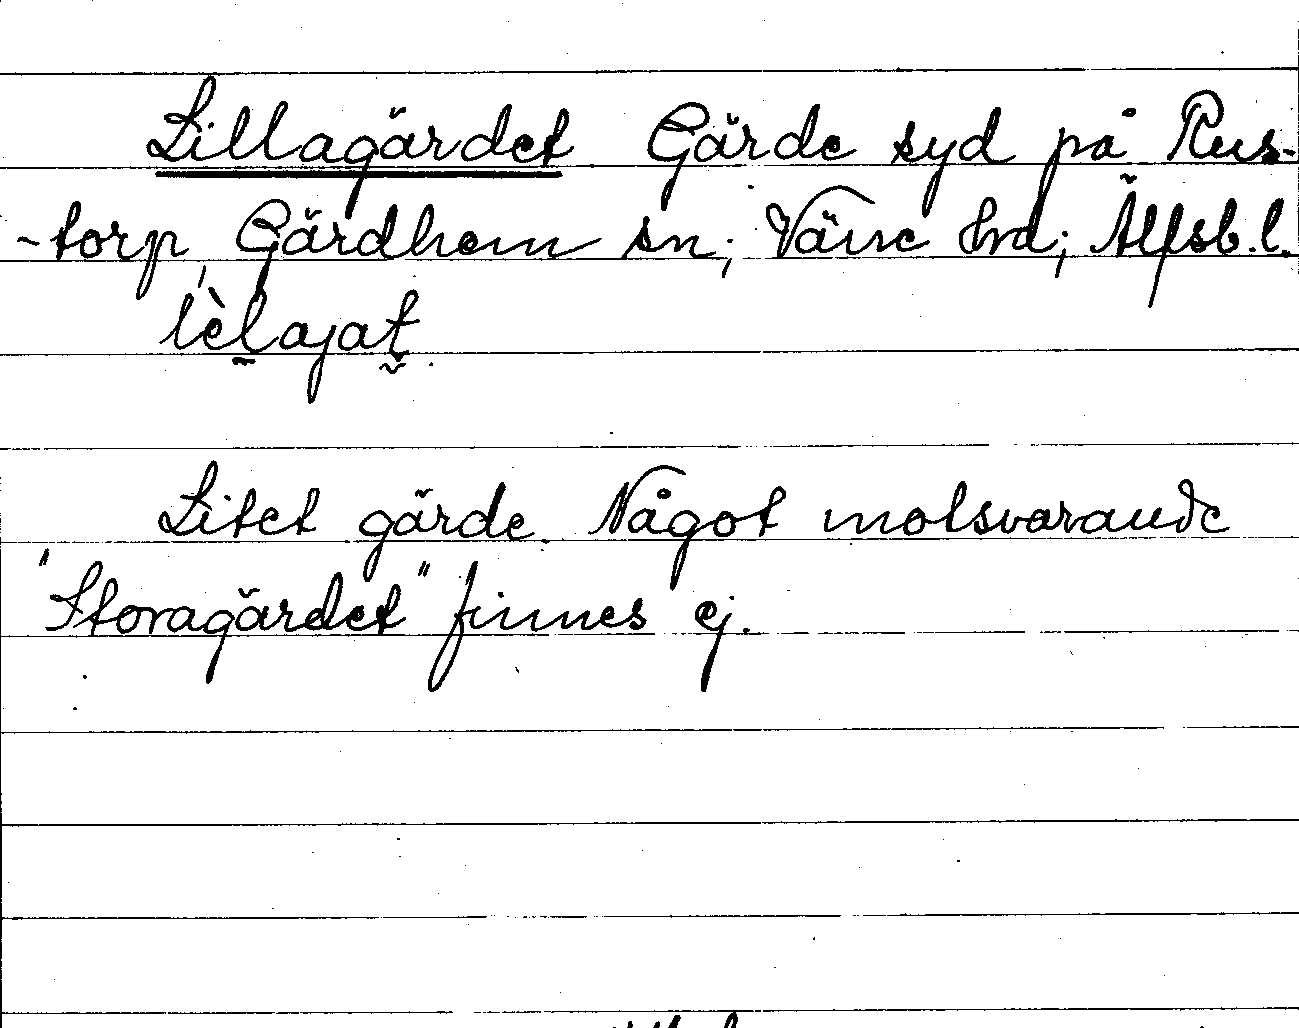 Lillagärdet. Gärde syd på Rus-
-torp, Gärdhem sn; Väne hrd; Älfsb. l.
lèlajat.
Litet gärde. Något motsvarande
"Storagärdet" finnes ej.